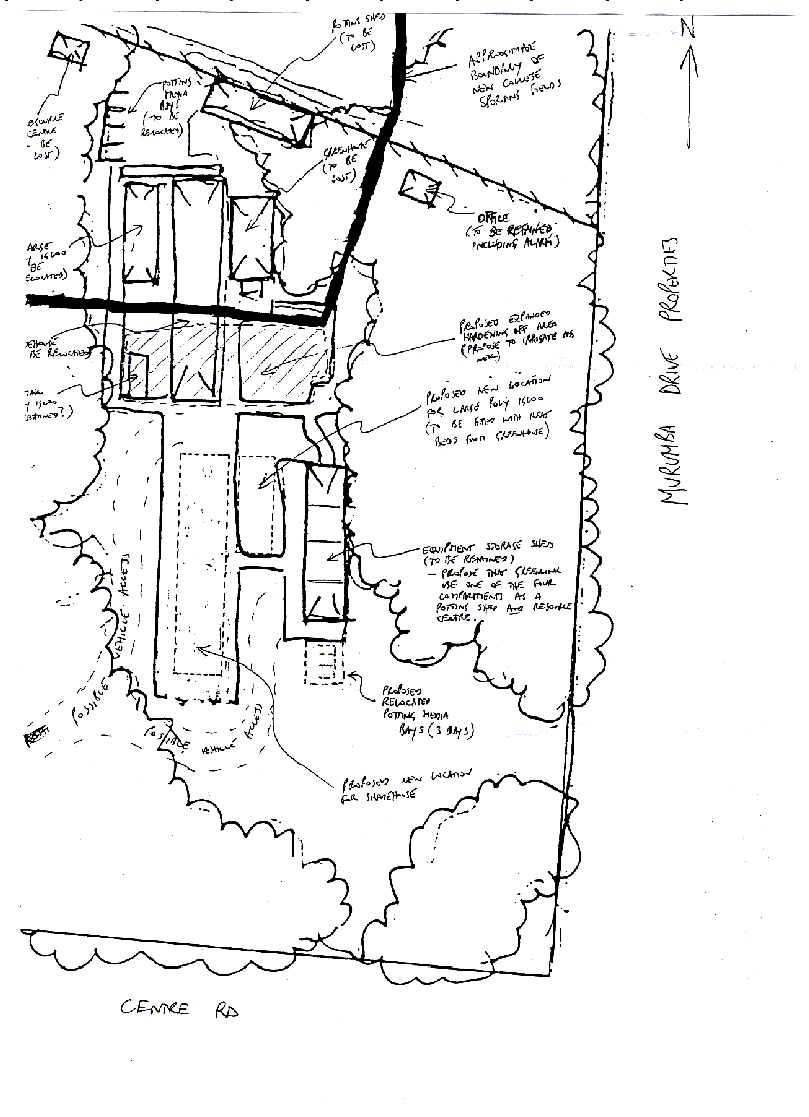 POTTING SHED
(TO BE
LOST)
APPROXIMATE
BOUNDARY OF
NEW COLLEGE
SPORTING FIELDS
N
POTTING
MEDIA
BAYS
(TO BE
RELOCATED)
CENTRE
BE
LOST)
GREENHOUSE
(TO BE
LOST)
OFFICE
(TO BE RETAINED
INCLUDING ALARM)
LARGE
IGLOO
BE
RELOCATED)
BE RELOCATED
PROPOSED EXPANDED
HARDENING OFF AREA
(PROPOSE TO IRRIGATE AS
IGLOO
PROPOSED NEW LOCATION
FOR LARGE POLY IGLOO
(TO BE FITED WITH HEAT
BEDS FROM GREENHOUSE)
MURUMBA DRIVE PROPERTIES
EQUIPMENT STORAGE SHED
(TO BE RETAINED)
- PROPOSE THAT GREENLINK
USE ONE OF THE FOUR
COMPARTMENTS AS A
POTTING SHED AND RESOURCE
CENTRE.
POSSIBLE VEHICLE ACCESS
POSSIBLE VEHICLE ACCESS
PROPOSED
RELOCATED
POTTING MEDIA
BAYS (3 BAYS)
PROPOSED NEW LOCATION
FOR SHADEHOUSE
CENTRE RD